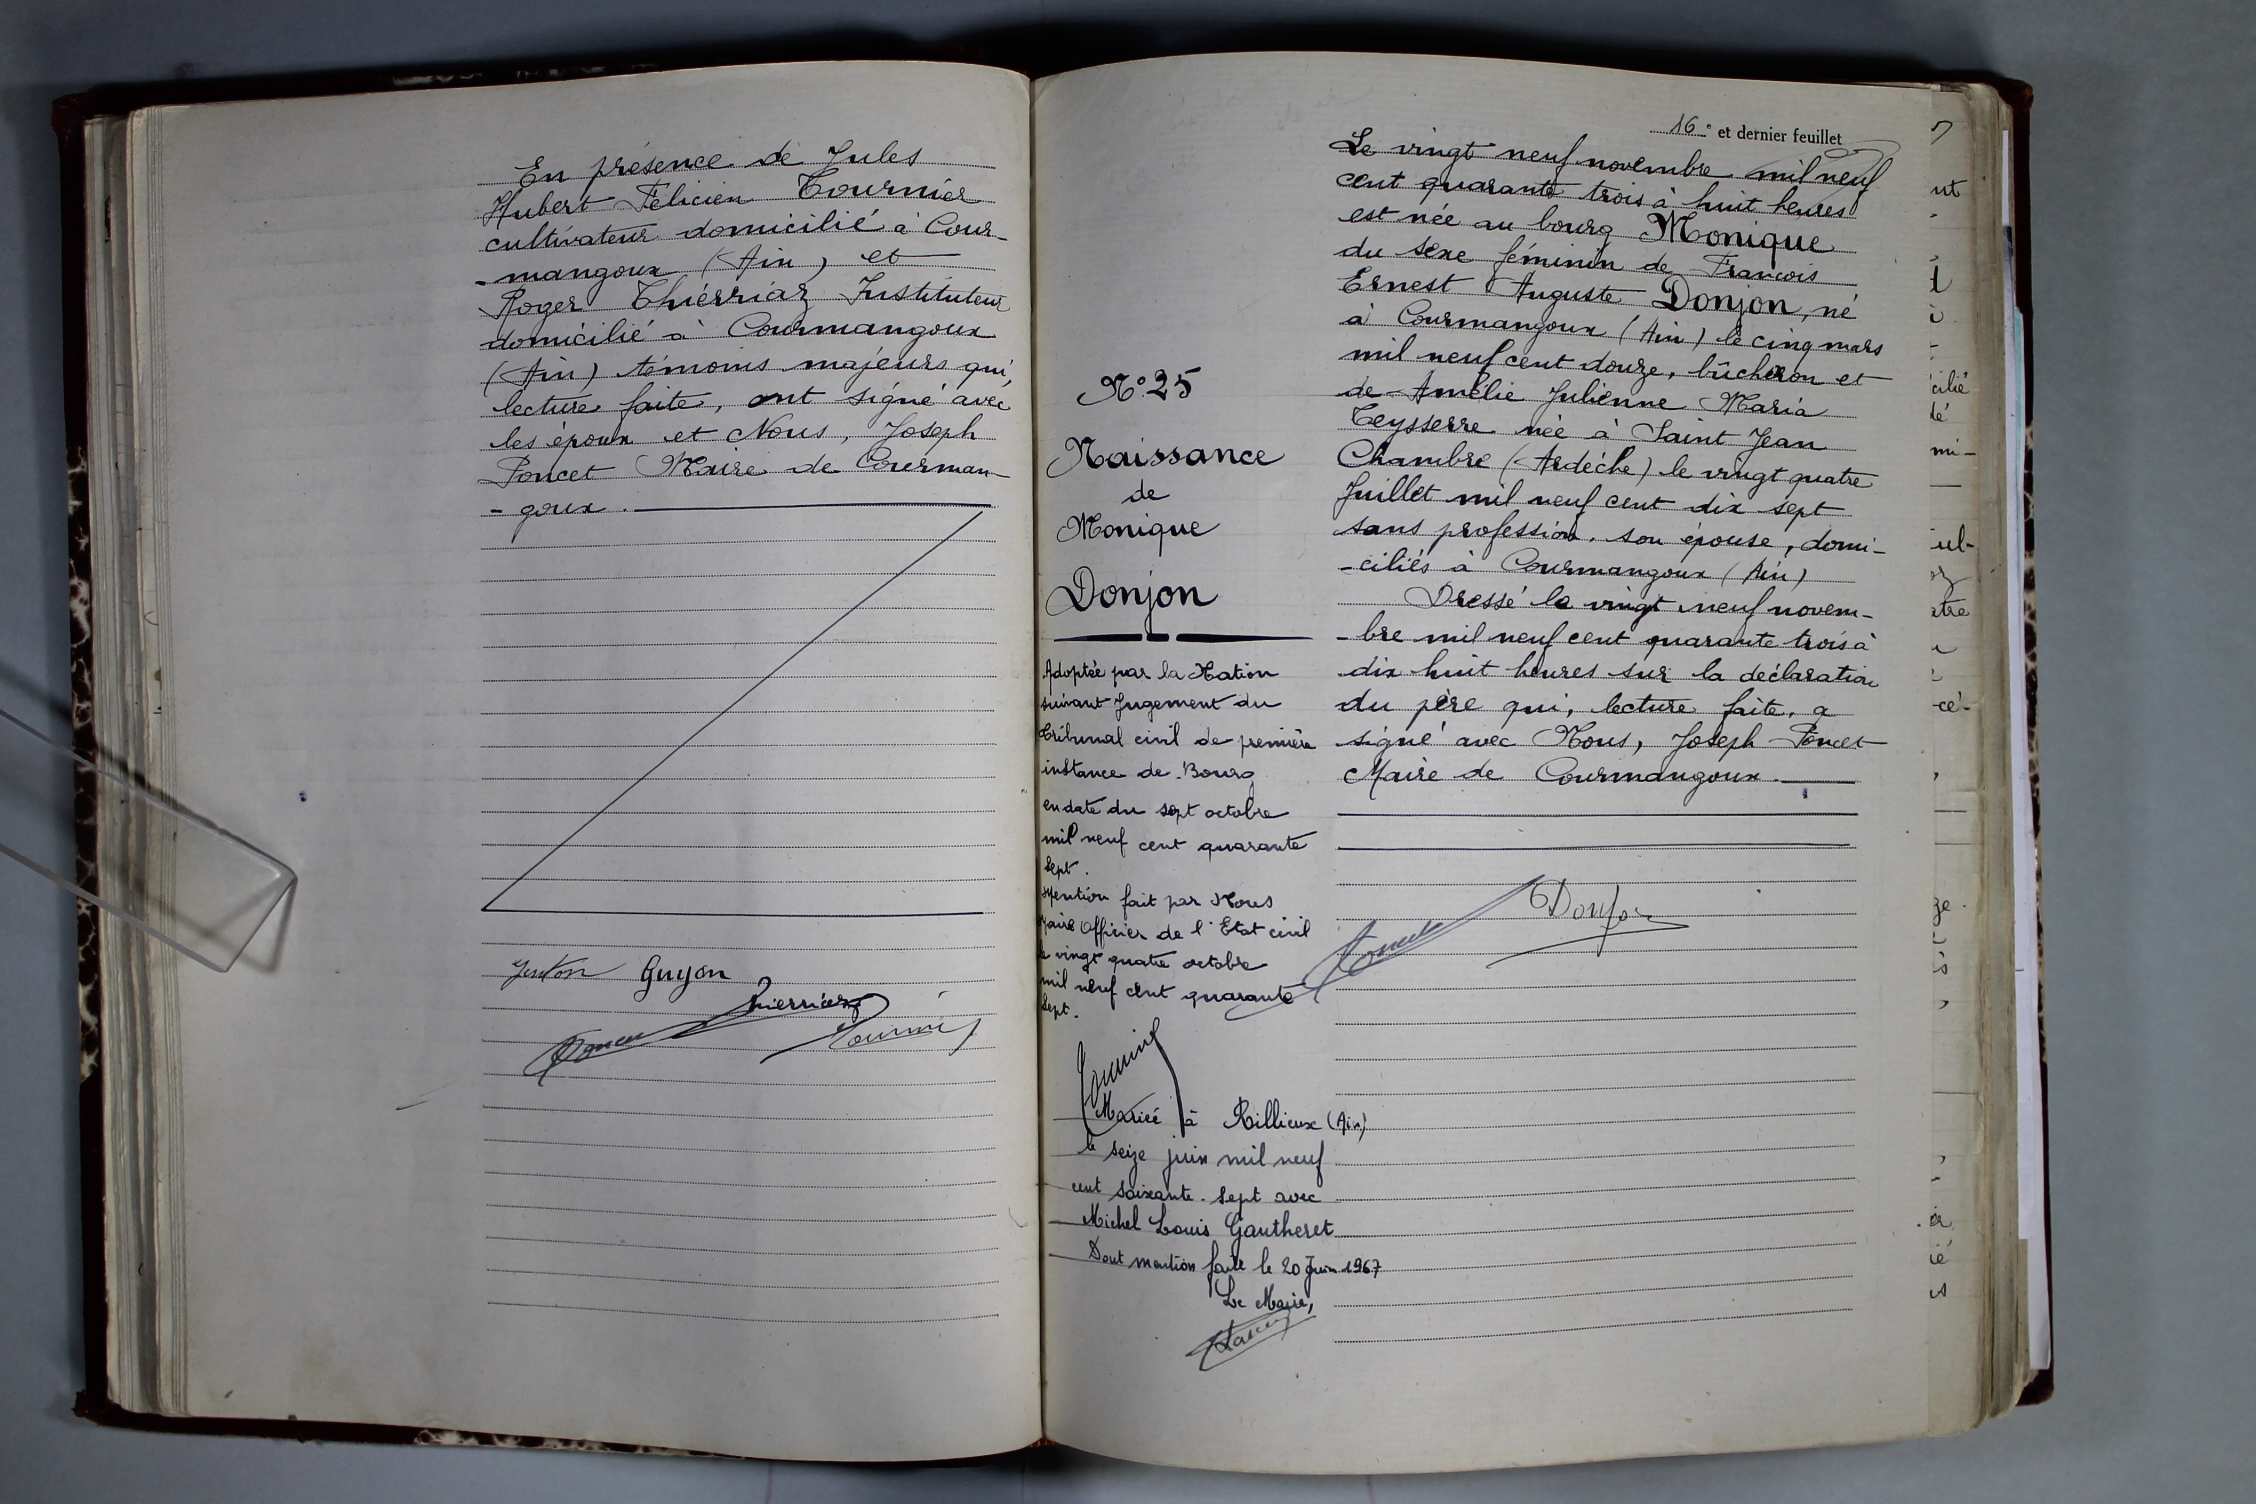 En présence de Jules
Hubert Félicien Tournier
cultivateur domicilié à Cour-
-mangoux (Ain) et
Roger Thiérriaz Instituteur
domicilié à Courmangoux
(Ain) témoins majeurs qui,
lecture faite, ont signé avec
les époux et Nous, Joseph
Poncet Maire de Courman-
-goux.
Guyon
Thierriaz
16e et dernier feuillet
Le vingt neuf novembre mil neuf
cent quarante trois à huit heures
est née au bourg Monique
du sexe féminin de François
Ernest Auguste Donjon, né
à Courmangoux (Ain) le cinq mars
mil neuf cent douze, bûcheron et
de Amélie Julienne Maria
Teysserre née à Saint Jean
Chambre (Ardèche) le vingt quatre
Juillet mil neuf cent dix sept
sans profession, son épouse, domi-
-ciliés à Courmangoux (Ain)
Dressé le vingt neuf novem-
-bre mil neuf cent quarante trois à
dix huit heures sur la déclaration
du père qui, lecture faite, a
signé avec Nous, Joseph Poncet
Maire de Courmangoux.
Donjon
N° 25
Naissance
de
Monique
Donjon
Adoptée par la Nation
suivant Jugement du
Tribunal civil de première
instance de Bourg
en date du sept octobre
mil neuf cent quarante
sept.
Mention fait par Nous
Maire Officier de l'Etat civil
le vingt quatre octobre
mil neuf cent quarante
sept.
Mariée à Rillieux (Ain)
le seize juin mil neuf
cent soixante-sept avec
Michel Louis Gautheret
Dont mention faite le 20 Juin 1967
Le Maire,